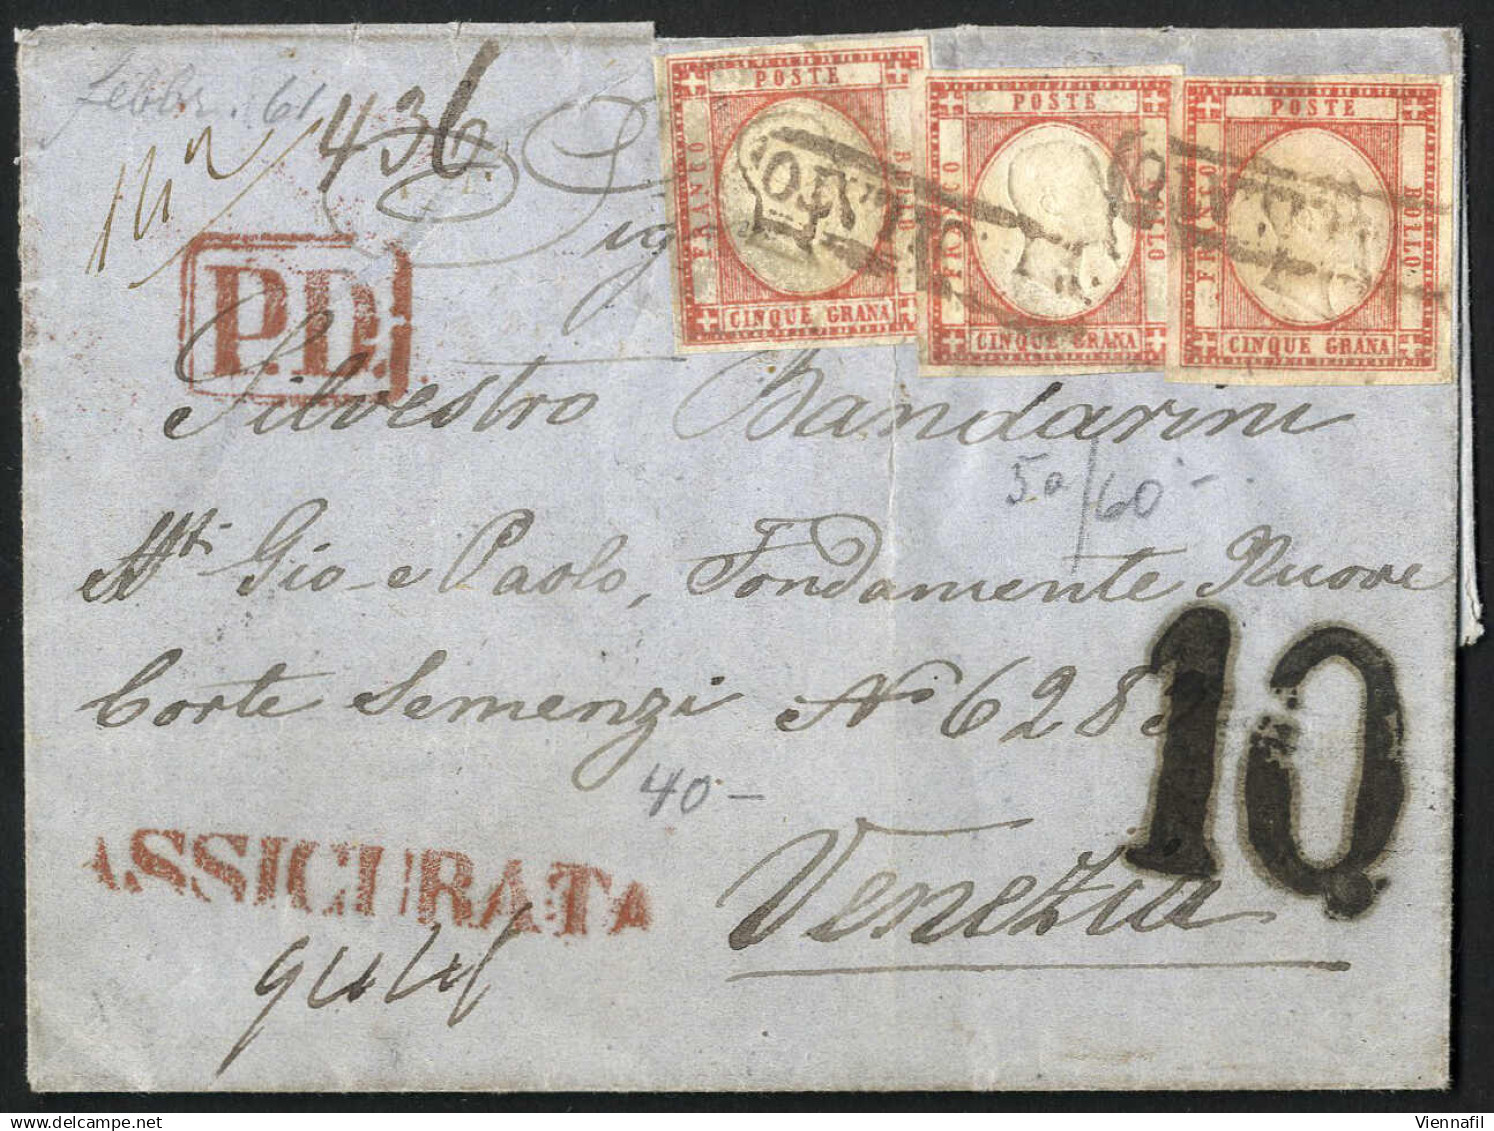 Febbr. 61
436
Sig
P.D.
FRANCO POSTE BOLLO CINQUE GRANA
FRANCO POSTE BOLLO CINQUE GRANA
FRANCO POSTE BOLLO CINQUE GRANA
Silvestro Bandarini
50/60
Gio e Paolo, Fondamente Nuove
Corte Semenzi No 628
10
40-
ASSICURATA
Venezia
Viennafil